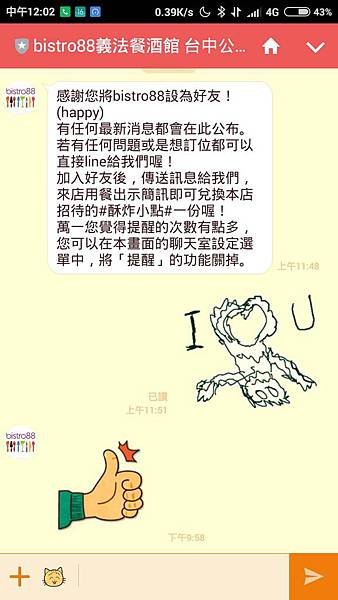 中午12:02
0.39K/s
4G
43%
bistro88義法餐酒館 台中公...
bistro88
感謝您將bistro88設為好友！
(happy)
有任何最新消息都會在此公布。
若有任何問題或是想訂位都可以
直接line給我們喔！
加入好友後，傳送訊息給我們，
來店用餐出示簡訊即可兌換本店
招待的#酥炸小點#一份喔！
萬一您覺得提醒的次數有點多，
您可以在本畫面的聊天室設定選
單中，將「提醒」的功能關掉。
上午11:48
I U
已讀
上午11:51
bistro88
下午9:58